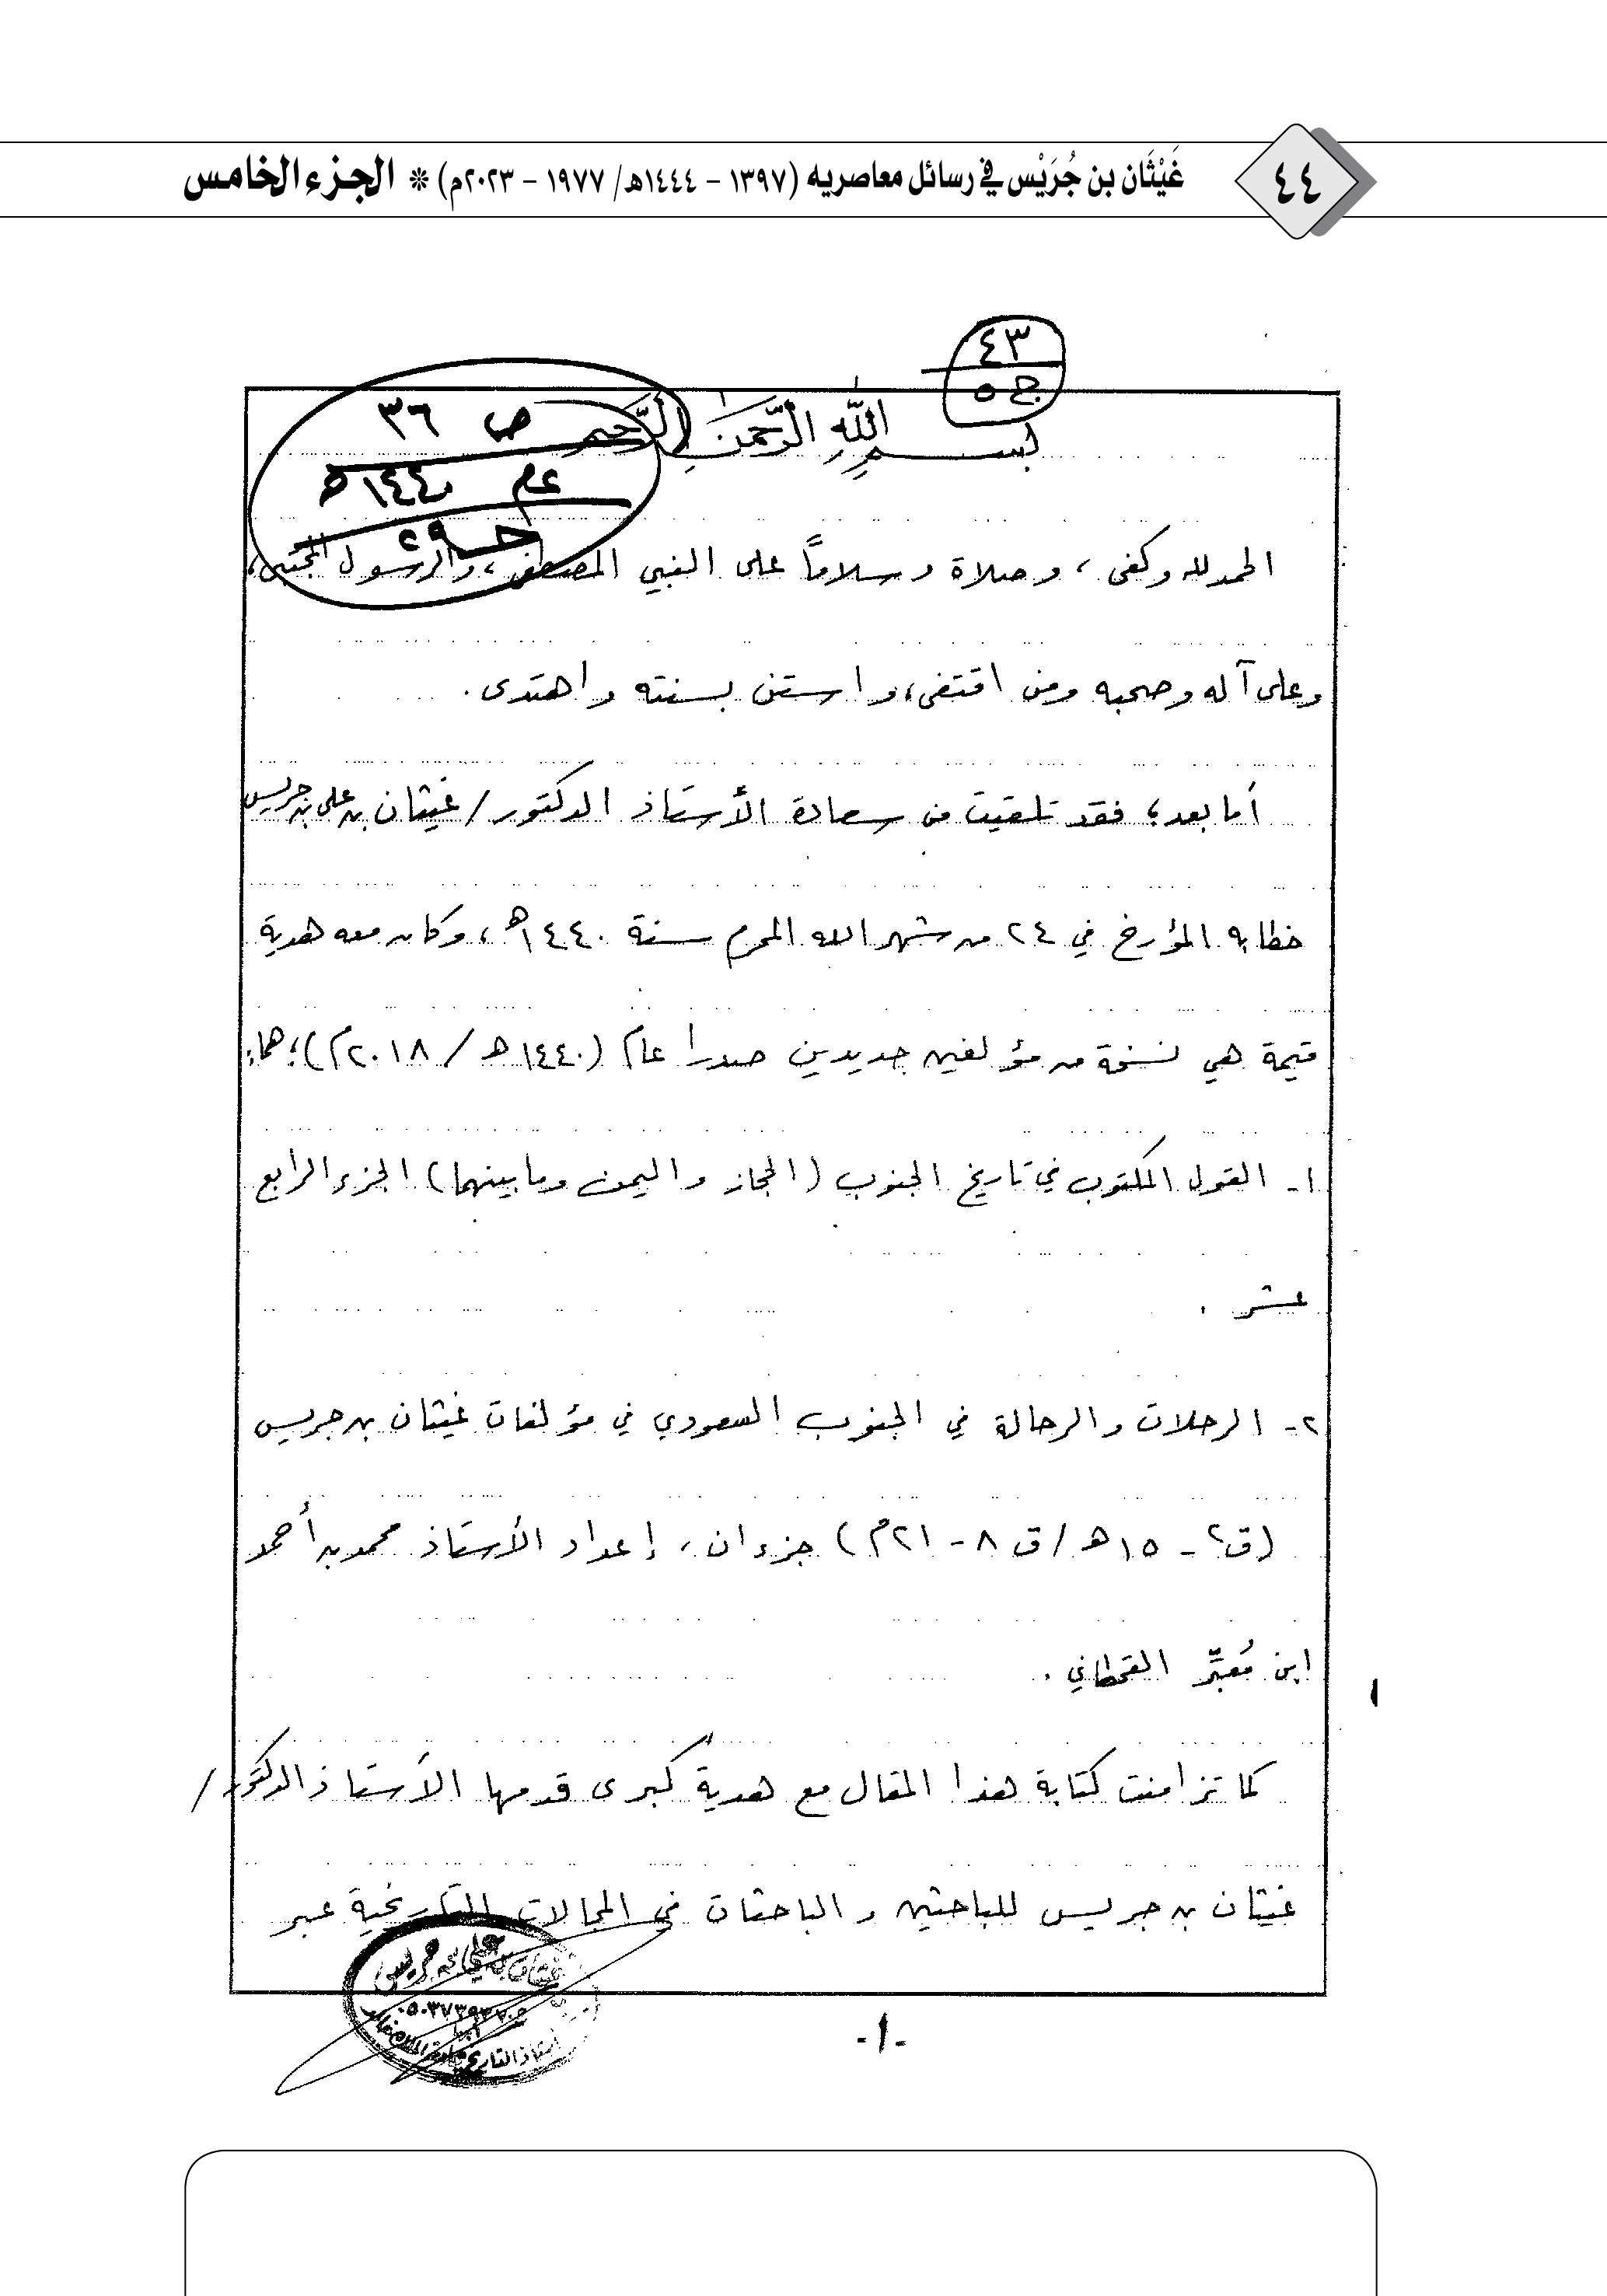 ٤٤
غَيْثَان بن جُرَيْس في رسائل معاصريه (١٣٩٧ - ١٤٤٤هـ/ ١٩٧٧ - ٢٠٢٣م) * الجزء الخامس
٤٣
ج ٥
ص ٣٦
عام ١٤٤٠هـ
بسم الله الرحمن الرحيم
الحمد لله وكفى، وصلاة وسلاماً على النبي المصطفى، والرسول المجتبى،
وعلى آله وصحبه ومن اقتفى، واستن بسنته واهتدى.
أما بعد؛ فقد تلقيت من سعادة الأستاذ الدكتور/ غيثان بن علي بن جريس
خطابه المؤرخ في ٢٤ من شهر الله المحرم سنة ١٤٤٠هـ، وكان معه هدية
قيمة هي نسخة من مؤلفين جديدين صدرا عام (١٤٤٠هـ / ٢٠١٨م)؛ هما:
١- القول المكتوب في تاريخ الجنوب (الحجاز واليمن وما بينهما) الجزء الرابع
عشر.
٢- الرحلات والرحالة في الجنوب السعودي في مؤلفات غيثان بن جريس
(ق٢ - ١٥هـ / ق ٨ - ٢١م) جزءان، إعداد الأستاذ محمد بن أحمد
ابن مُعبِّر القحطاني.
كما تزامنت كتابة هذا المقال مع هدية كبرى قدمها الأستاذ الدكتور/
غيثان بن جريس للباحثين والباحثات في المجالات التاريخية عبر
غيثان بن علي بن جريس
أبها
أستاذ التاريخ
-١-